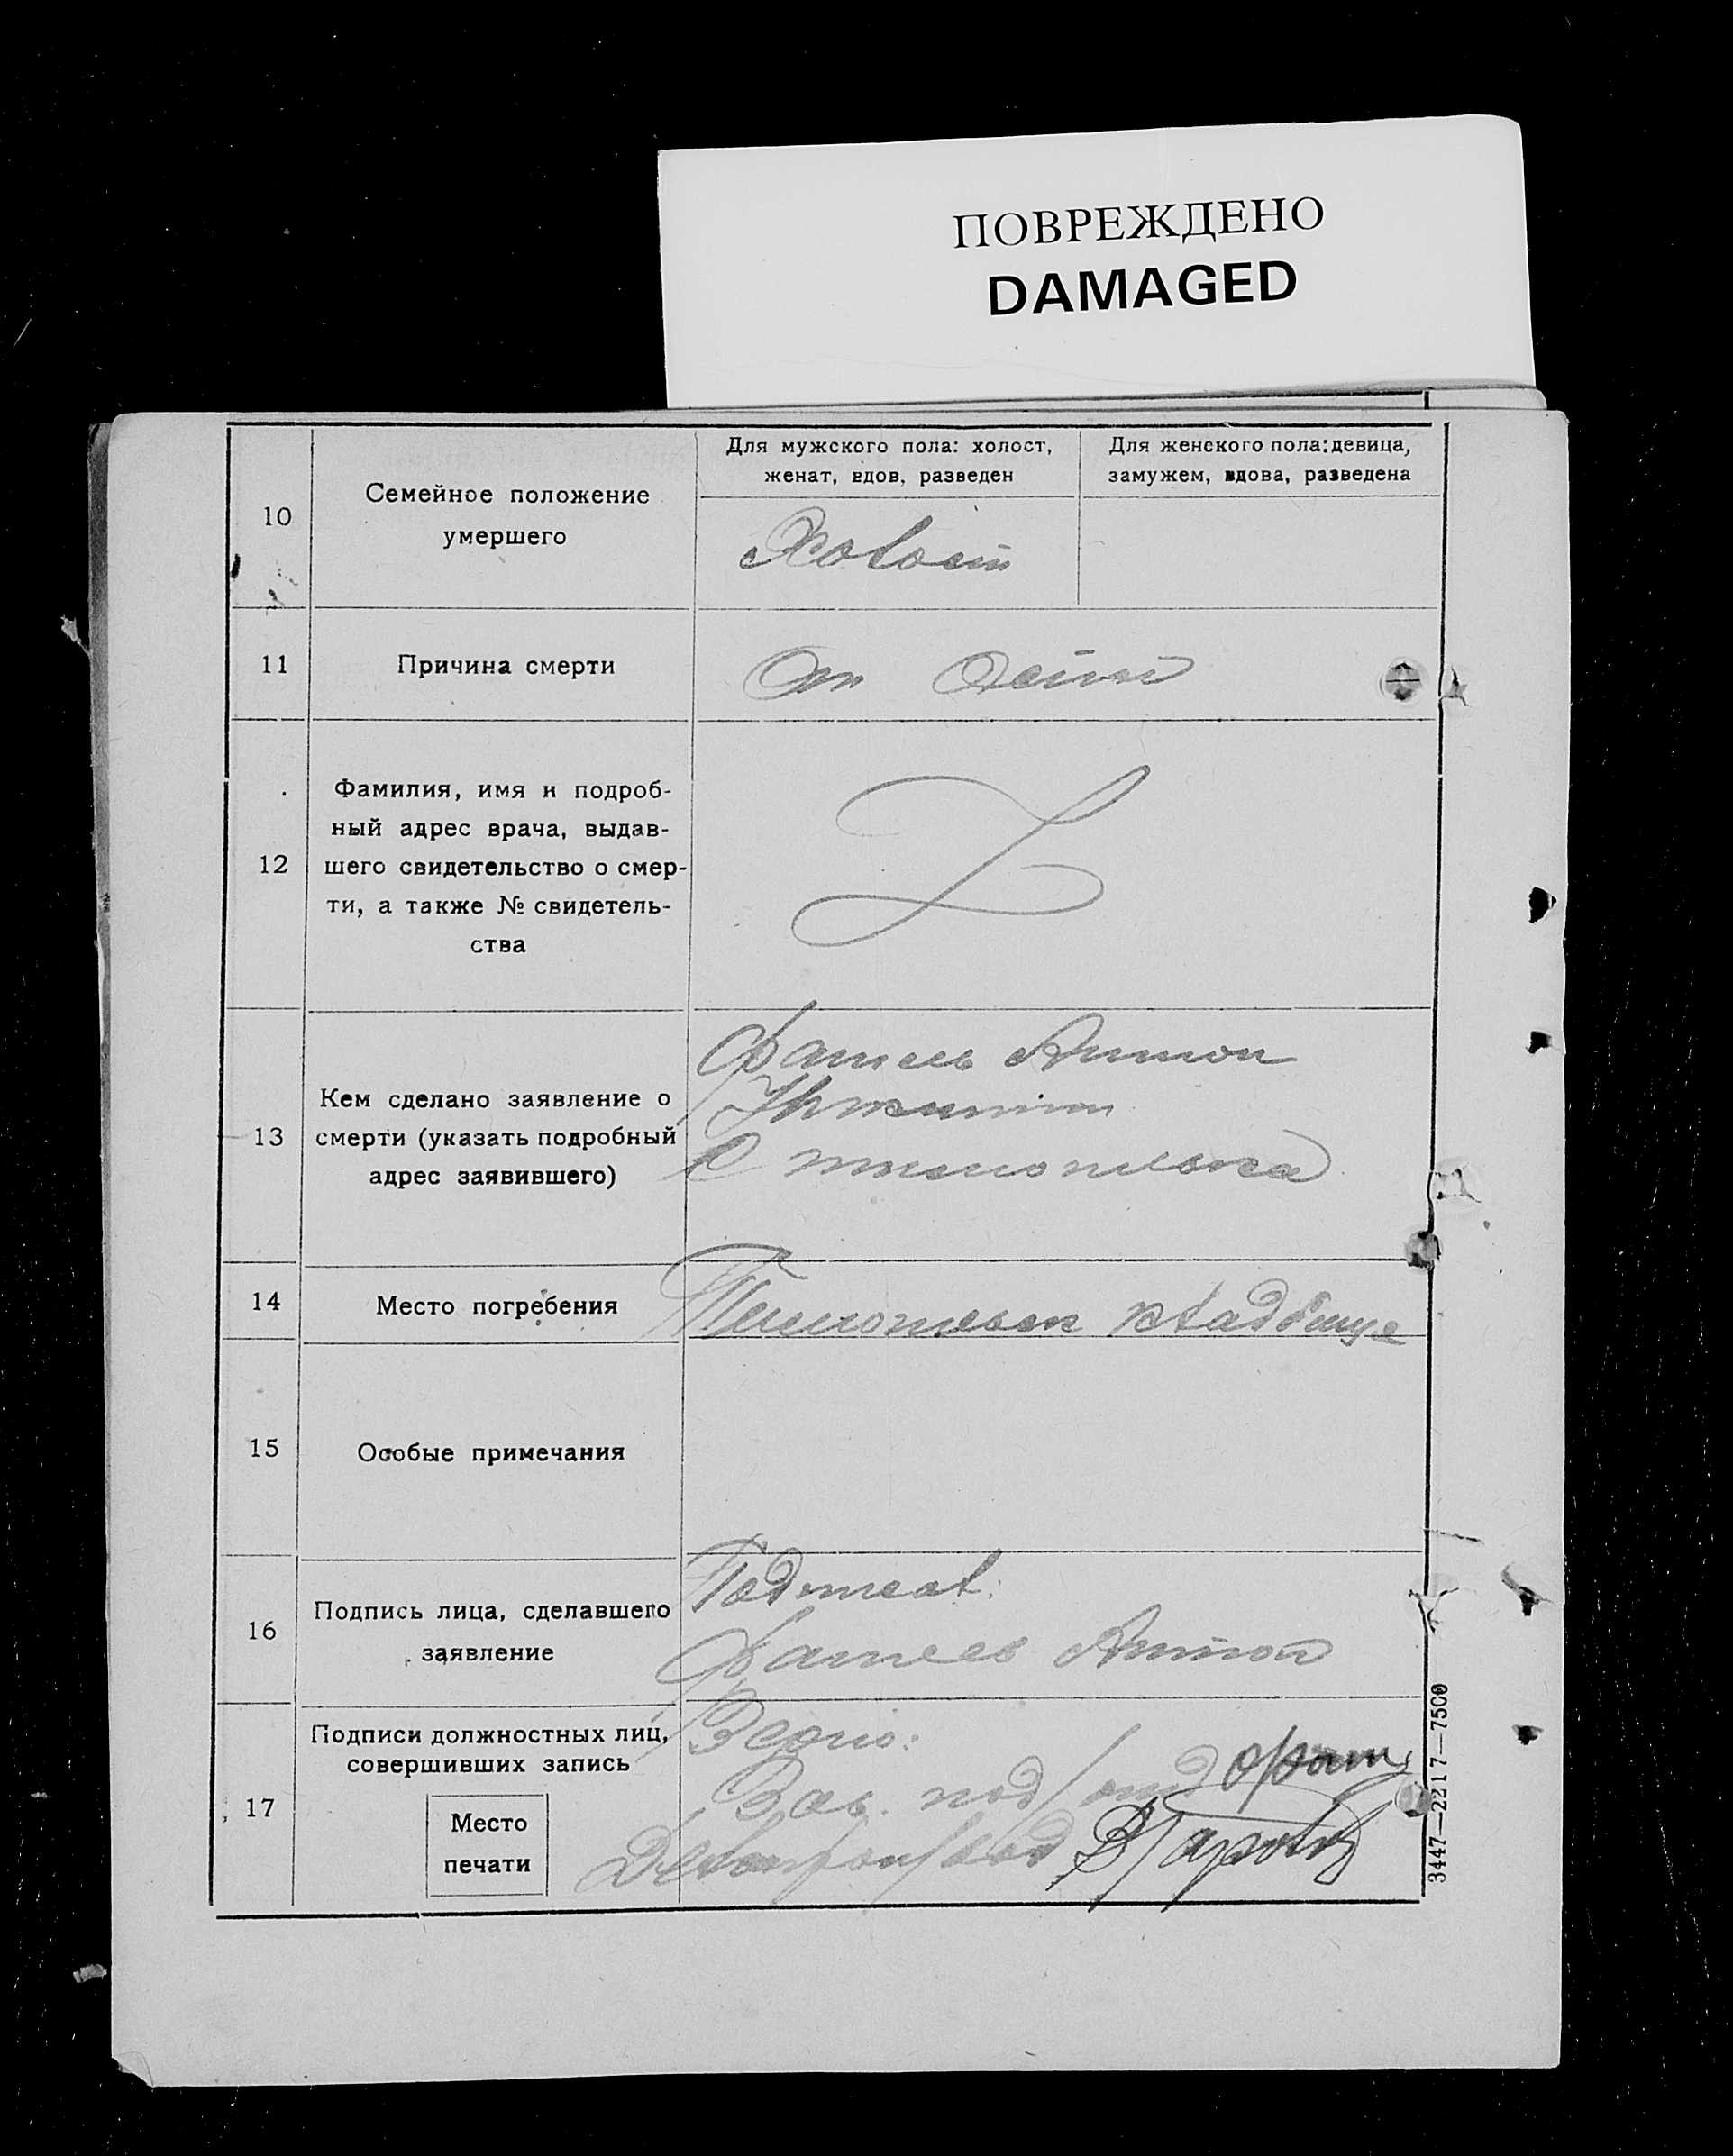 ПОВРЕЖДЕНО
DAMAGED
10
Семейное положение
умершего
Для мужского пола: холост,
женат, вдов, разведен
Для женского пола: девица,
замужем, вдова, разведена
Холост
11
Причина смерти
От
12
Фамилия, имя и подроб-
ный адрес врача, выдав-
шего свидетельство о смер-
ти, а также № свидетель-
ства
13
Кем сделано заявление о
смерти (указать подробный
адрес заявившего)
Антон
14
Место погребения
кладбище
15
Особые примечания
16
Подпись лица, сделавшего
заявление
Подписал:
Антон
17
Подписи должностных лиц,
совершивших запись
Место
печати
Верно:
Зав.
3447—2217—7500